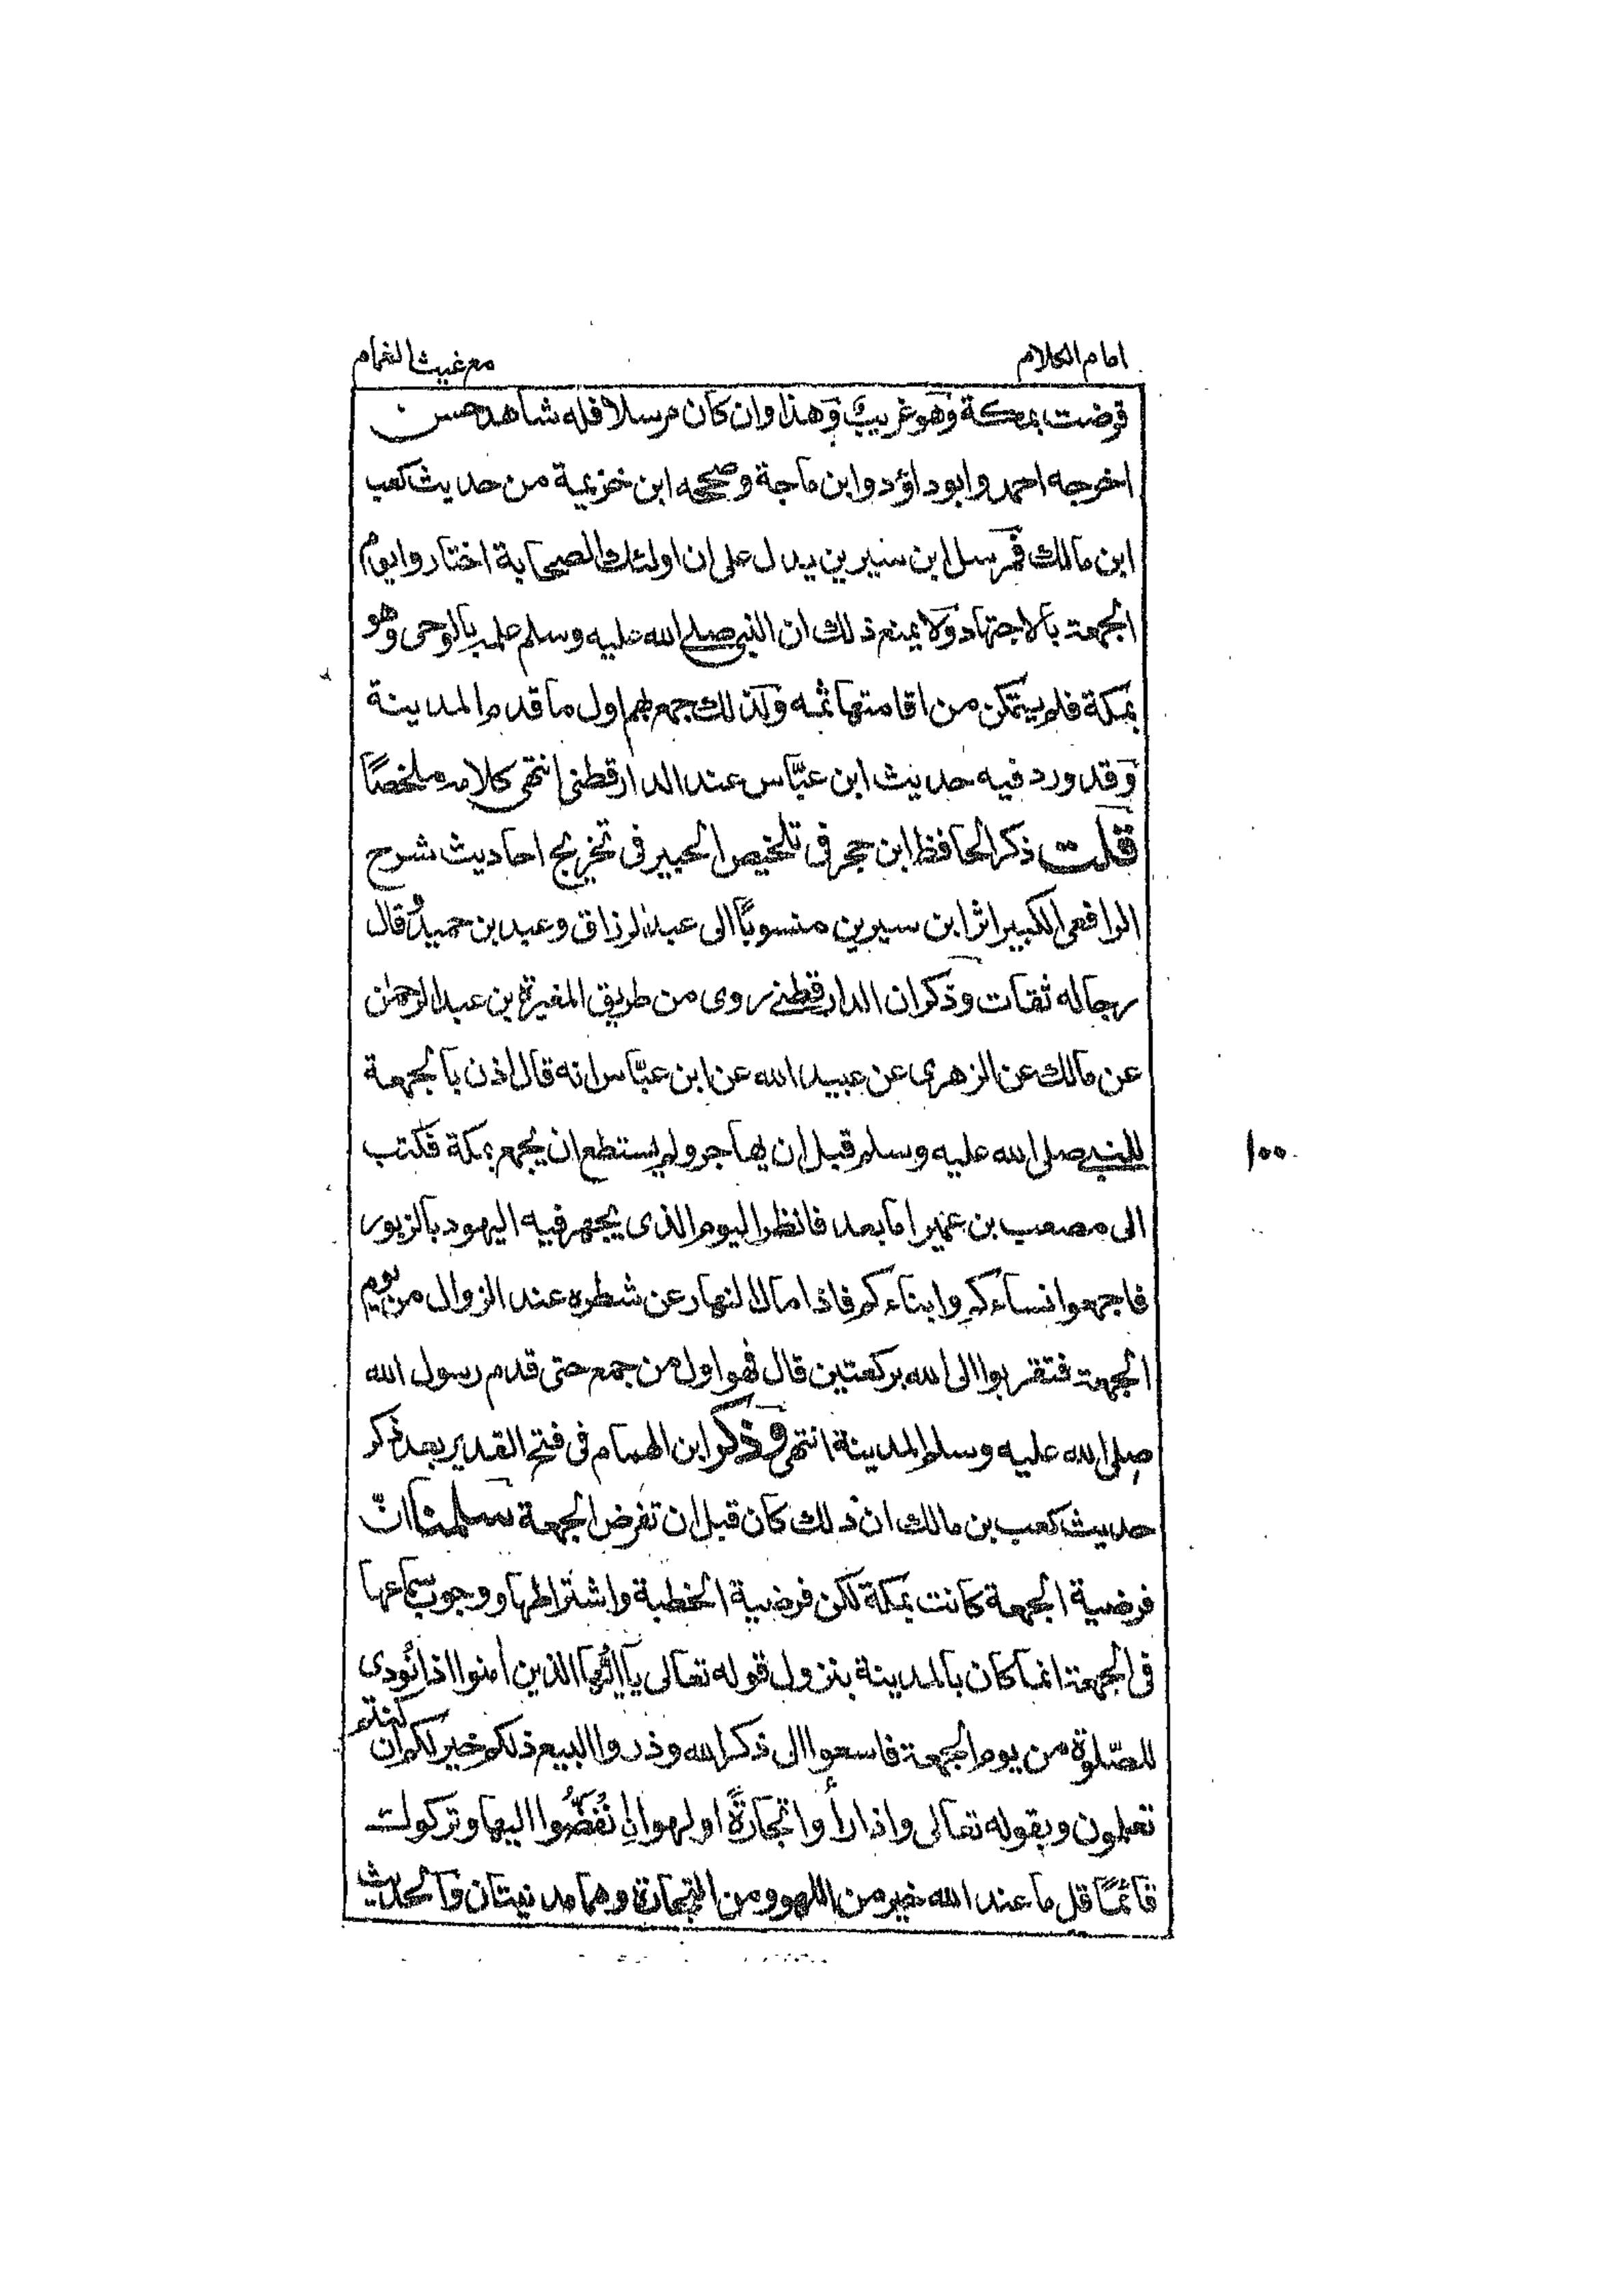 امام الكلام
مع غيث الغمام
فرضت بمكة وهو غريب وهذا وان كان مرسلا فله شاهد حسن
اخرجه احمد وابو داؤد وابن ماجة وصححه ابن خزيمة من حديث كعب
ابن مالك فمرسل ابن سيرين يدل على ان اولئك الصحابة اختاروا يوم
الجمعة بالاجتهاد ولا يمنع ذلك ان النبي صلى الله عليه وسلم علمه بالوحى وهو
بمكة فلم يتمكن من اقامتها ثمه ولذلك جمع بهم اول ما قدم المدينة
وقد ورد فيه حديث ابن عبّاس عند الدارقطنى انتهى كلامه ملخصًا
قلت ذكر الحافظ ابن حجر فى تلخيص الحبير فى تخريج احاديث شرح
الرافعى الكبير اثر ابن سيرين منسوبًا الى عبد الرزاق وعبد بن حميد وقال
رجاله ثقات وذكر ان الدارقطنى روى من طريق المغيرة بن عبد الرحمٰن
عن مالك عن الزهرى عن عبيد الله عن ابن عبّاس انه قال اذن بالجمعة
للنبى صلى الله عليه وسلم قبل ان يهاجر ولم يستطع ان يجمع بمكة فكتب
الى مصعب بن عمير اما بعد فانظر اليوم الذى يجهر فيه اليهود بالزبور
فاجمعوا نساءكم وابناءكم فاذا مال النهار عن شطره عند الزوال من يوم
الجمعة فتقربوا الى الله بركعتين قال فهو اول من جمع حتى قدم رسول الله
صلى الله عليه وسلم المدينة انتهى وذكر ابن الهمام فى فتح القدير بعد ذكر
حديث كعب بن مالك ان ذلك كان قبل ان تفرض الجمعة سلمنا انّ
فرضية الجمعة كانت بمكة لكن فرضية الخطبة واشتراطها ووجوب سماعها
فى الجمعة انما كان بالمدينة بنزول قوله تعالى يا ايُّها الذين امنوا اذا نُودى
للصّلوة من يوم الجمعة فاسعوا الى ذكر الله وذروا البيع ذلكم خير لكم ان كنتم
تعلمون وبقوله تعالى واذا رأوا تجارةً او لهوا انفَضُّوا اليها وتركوك
قائمًا قل ما عند الله خير من اللهو ومن التجارة وهما مدنيتان والحديث
١٠٠